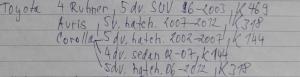 Toyota 4 Runner, 5 dv SUV 96-2003, K469
Auris 5v. hatch. 2007-2012, K318
Corolla 5 dv. hatch. 2002-2007, K144
4 dv. sedan 02-07, K144
5dv. hatch. 06-2012, K318